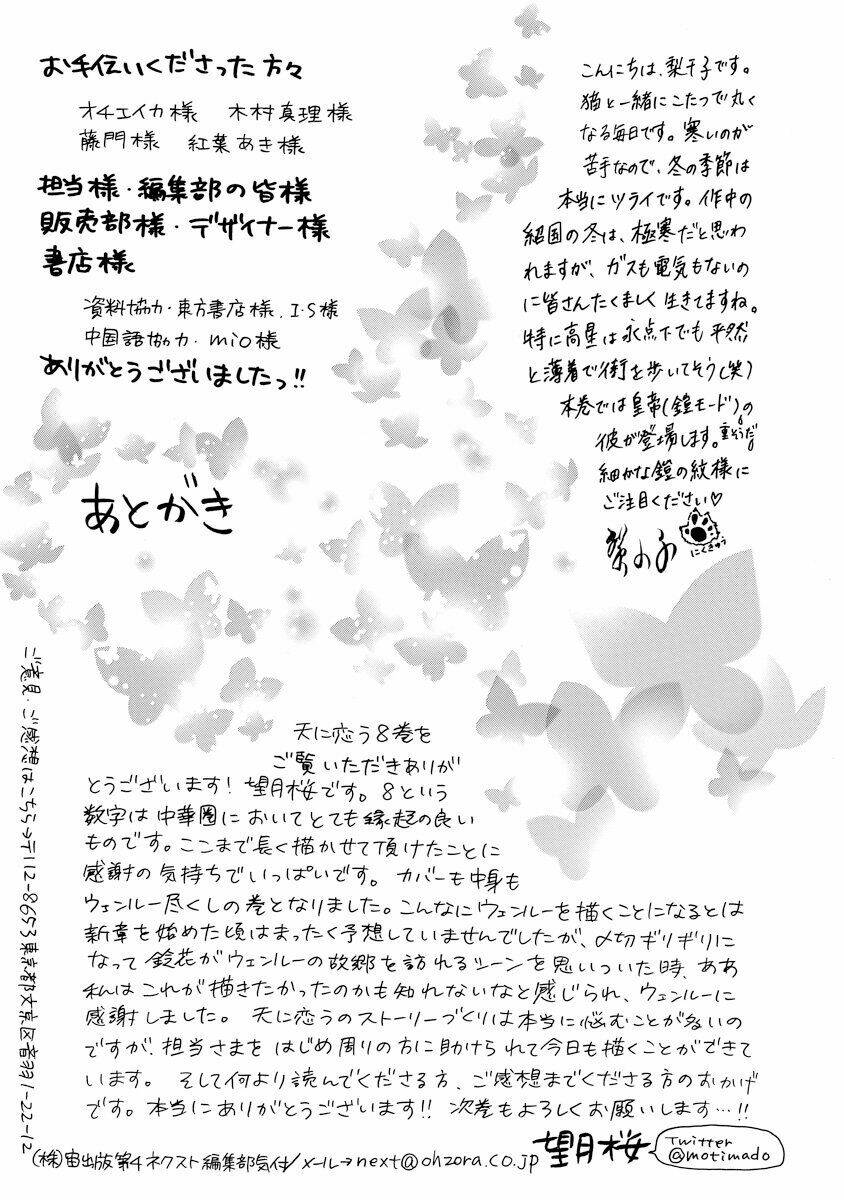 お手伝いくださった方々
オチエイカ様　木村真理様
藤門様　紅葉あき様
担当様・編集部の皆様
販売部様・デザイナー様
書店様
資料協力・東方書店様、I・S様
中国語協力・mio様
ありがとうございましたっ!!
こんにちは、梨千子です。
猫と一緒にこたつで丸く
なる毎日です。寒いのが
苦手なので、冬の季節は
本当にツライです。作中の
紹国の冬は、極寒だと思わ
れますが、ガスも電気もないの
に皆さんたくましく生きてますね。
特に高星は氷点下でも平然
と薄着で街を歩いてそう(笑)
本巻では皇帝(鎧モード)の
彼が登場します。重そうだ
細かな鎧の紋様に
ご注目ください♡
にくきゅう
あとがき
天に恋う8巻を
ご覧いただきありが
とうございます！望月桜です。8という
数字は中華圏においてとても縁起の良い
ものです。ここまで長く描かせて頂けたことに
感謝の気持ちでいっぱいです。カバーも中身も
ウェンルー尽くしの巻となりました。こんなにウェンルーを描くことになるとは
新章を始めた頃はまったく予想していませんでしたが、〆切ギリギリに
なって鈴花がウェンルーの故郷を訪れるシーンを思いついた時、ああ
私はこれが描きたかったのかも知れないなと感じられ、ウェンルーに
感謝しました。天に恋うのストーリーづくりは本当に悩むことが多いの
ですが、担当さまをはじめ周りの方に助けられて今日も描くことができて
います。そして何より読んでくださる方、ご感想までくださる方のおかげ
です。本当にありがとうございます!!次巻もよろしくお願いします…!!
望月桜
Twitter
@motimado
ご意見・ご感想はこちら→〒112-8653東京都文京区音羽1-22-12
(株)宙出版第4ネクスト編集部気付/メール→next@ohzora.co.jp